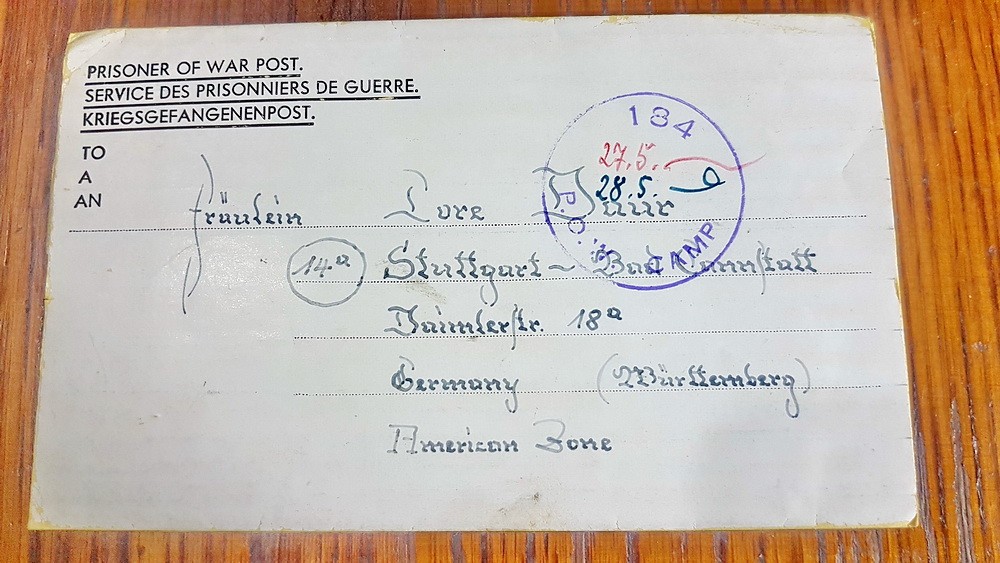 PRISONER OF WAR POST.
SERVICE DES PRISONNIERS DE GUERRE.
KRIEGSGEFANGENENPOST.
TO
A
AN
184
27.5.
28.5.
P.O.W. CAMP
Fräulein Lore
14a Stuttgart - Bad Cannstatt
Daimlerstr. 18a
Germany (Württemberg)
American Zone